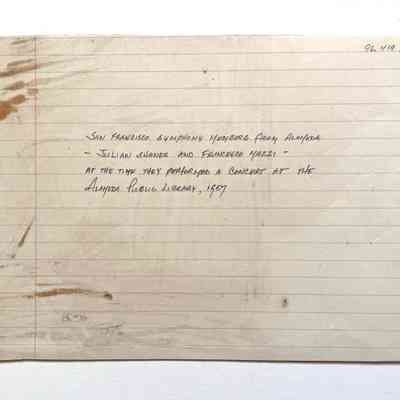 96.419
San Francisco Symphony Members from Alameda
- Julian and Francesco Mazzi -
at the time they performed a concert at the
Alameda Public Library, 1957